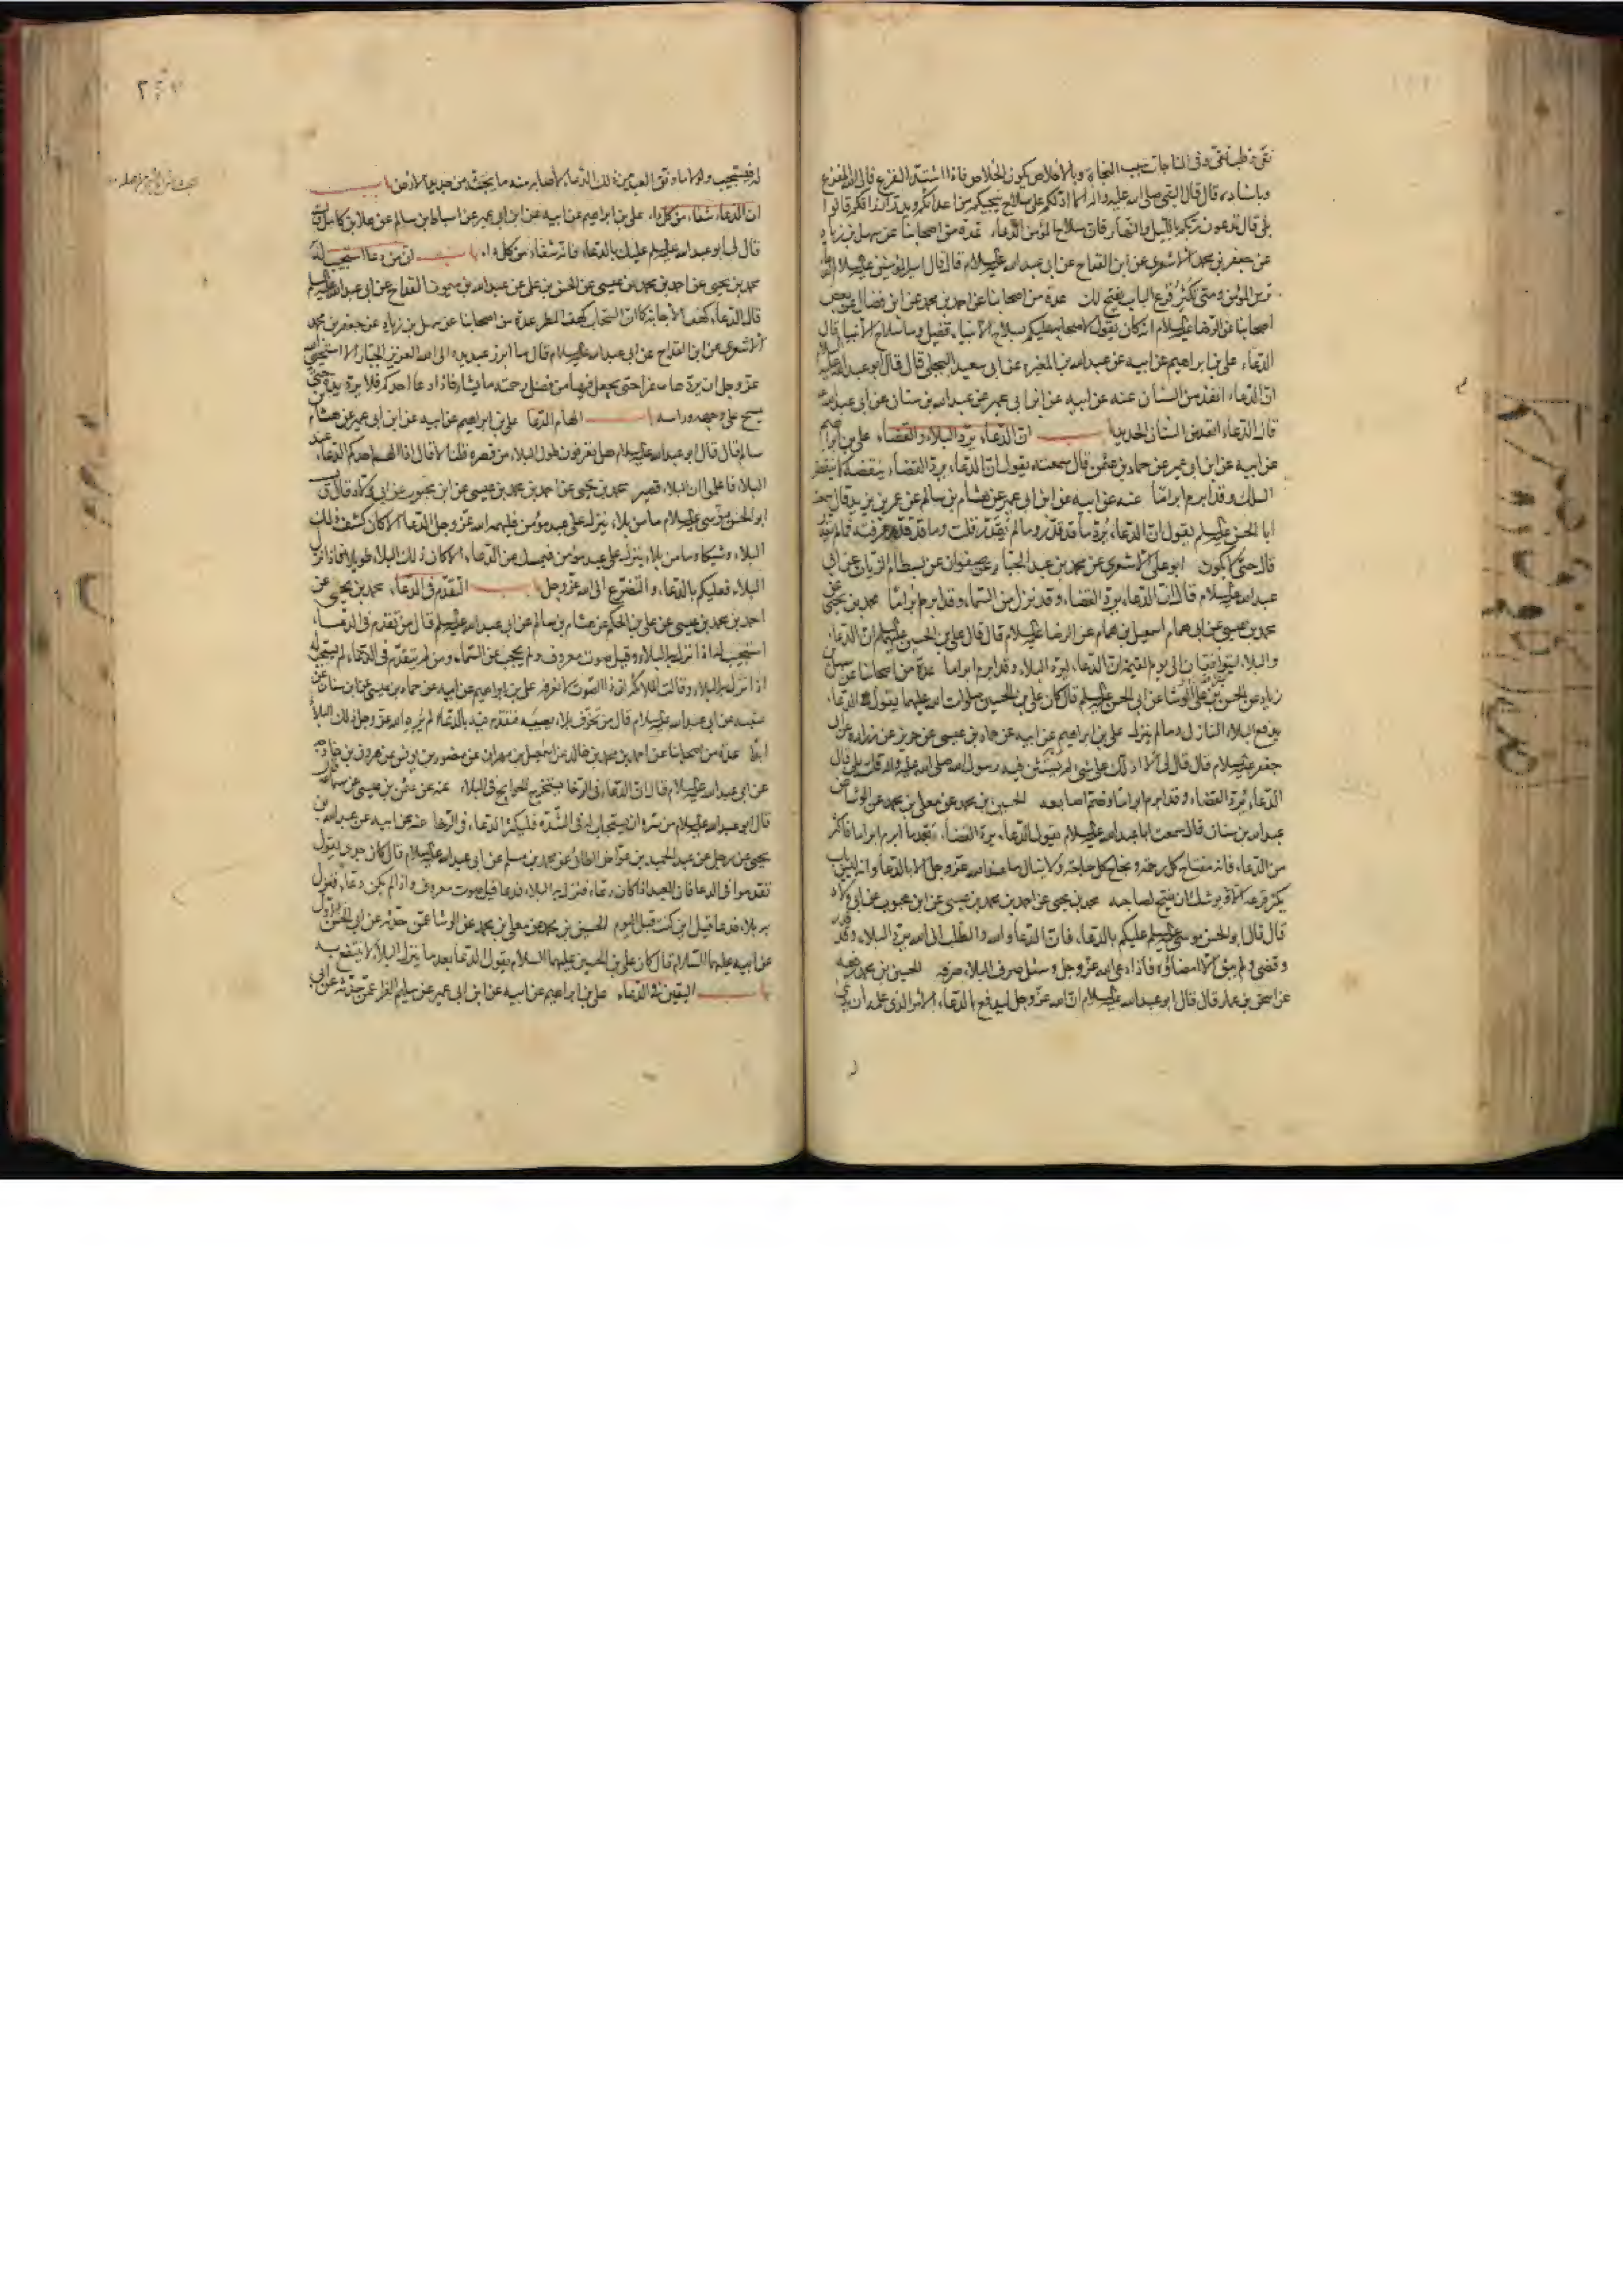 نقي وقلب تقي وفي المناجات سبب النجاة وبالاخلاص يكون الخلاص فاذا اشتد الفزع فالى الله المفزع
وباسناده قال قال النبي صلى الله عليه واله الا ادلكم على سلاح ينجيكم من اعدائكم ويدر ارزاقكم قالوا
بلى قال تدعون ربكم بالليل والنهار فان سلاح المؤمن الدعاء عدة من اصحابنا عن سهل بن زياد
عن جعفر بن محمد الاشعري عن ابن القداح عن ابي عبد الله عليه السلام قال قال امير المؤمنين عليه السلام الدعاء
ترس المؤمن ومتى تكثر قرع الباب يفتح لك عدة من اصحابنا عن احمد بن محمد عن ابن فضال عن بعض
اصحابنا عن الرضا عليه السلام انه كان يقول لاصحابه عليكم بسلاح الانبياء فقيل وما سلاح الانبياء قال
الدعاء علي بن ابراهيم عن ابيه عن عبد الله بن المغيرة عن ابي سعيد البجلي قال قال ابو عبد الله عليه السلام
ان الدعاء انفذ من السنان عنه عن ابيه عن ابن ابي عمير عن عبد الله بن سنان عن ابي عبد الله
قال الدعاء انفذ من السنان الحديد باب ان الدعاء يرد البلاء والقضاء علي بن ابراهيم
عن ابيه عن ابن ابي عمير عن حماد بن عثمن قال سمعته يقول ان الدعاء يرد القضاء ينقضه كما ينقض
السلك وقد ابرم ابراما عنه عن ابيه عن ابن ابي عمير عن هشام بن سالم عن عمر بن يزيد قال سمعت
ابا الحسن عليه السلم يقول ان الدعاء يرد ما قد قدر وما لم يقدر قلت وما قد قدر عرفته فما لم يقدر
قال حتى لا يكون ابو علي الاشعري عن محمد بن عبد الجبار عن صفوان عن بسطام الزيات عن ابي
عبد الله عليه السلام قال ان الدعاء يرد القضاء وقد نزل من السماء وقد ابرم ابراما محمد بن يحيى عن
محمد بن عيسى عن ابي همام اسمعيل بن همام عن الرضا عليه السلام قال قال علي بن الحسين عليهما السلم ان الدعاء
والبلاء ليترافقان الى يوم القيمة ان الدعاء ليرد البلاء وقد ابرم ابراما عدة من اصحابنا عن سهل بن
زياد عن الحسن بن علي الوشا عن ابي الحسن عليه السلم قال كان علي بن الحسين صلوات الله عليهما يقول الدعاء
يدفع البلاء النازل وما لم ينزل علي بن ابراهيم عن ابيه عن حماد بن عيسى عن حريز عن زرارة عن ابي
جعفر عليه السلام قال قال لي الا ادلك على شي لم يستثن فيه رسول الله صلى الله عليه واله قلت بلى قال
الدعاء يرد القضاء وقد ابرم ابراما وضم اصابعه الحسين بن محمد عن معلى بن محمد عن الوشا عن
عبد الله بن سنان قال سمعت ابا عبد الله عليه السلام يقول الدعاء يرد القضاء بعد ما ابرم ابراما فاكثر
من الدعاء فانه مفتاح كل رحمة ونجاح كل حاجة ولا ينال ما عند الله عز وجل الا بالدعاء وانه ليس باب
يكثر قرعه الا يوشك ان يفتح لصاحبه محمد بن يحيى عن احمد بن محمد بن عيسى عن ابن محبوب عن ابي ولاد
قال قال ابو الحسن موسى عليه السلم عليكم بالدعاء فان الدعاء والله والطلب الى الله يرد البلاء وقد قدر
وقضي ولم يبق الا امضاؤه فاذا دعي الله عز وجل وسئل صرف البلاء صرفه الحسين بن محمد رفعه
عن اسحق بن عمار قال قال ابو عبد الله عليه السلام ان الله عز وجل ليدفع بالدعاء الامر الذي علمه ان يدعى
له فيستجيب ولولا ما وفق العبد من ذلك الدعاء لاصابه منه ما يجثه من جديد الارض باب
ان الدعاء شفاء من كل داء علي بن ابراهيم عن ابيه عن ابن ابي عمير عن اسباط بن سالم عن علا بن كامل قال
قال لي ابو عبد الله عليه السلم عليك بالدعاء فانه شفاء من كل داء باب ان من دعا استجيب له
محمد بن يحيى عن احمد بن محمد بن عيسى عن الحسن بن علي عن عبد الله بن ميمون القداح عن ابي عبد الله عليه السلم
قال الدعاء كهف الاجابة كما ان السحاب كهف المطر عدة من اصحابنا عن سهل بن زياد عن جعفر بن محمد
الاشعري عن ابن القداح عن ابي عبد الله عليه السلام قال ما ابرز عبد يده الى الله العزيز الجبار الا استحيى الله
عز وجل ان يردها صفرا حتى يجعل فيها من فضل رحمته ما يشاء فاذا دعا احدكم فلا يرد يده حتى
يمسح على وجهه وراسه باب الهام الدعا علي بن ابراهيم عن ابيه عن ابن ابي عمير عن هشام بن
سالم قال قال ابو عبد الله عليه السلام هل تعرفون طول البلاء من قصره قلنا لا قال اذا الهم احدكم الدعاء عند
البلاء فاعلموا ان البلاء قصير محمد بن يحيى عن احمد بن محمد بن عيسى عن ابن محبوب عن ابي ولاد قال قال
ابو الحسن موسى عليه السلام ما من بلاء ينزل على عبد مؤمن فيلهمه الله عز وجل الدعاء الا كان كشف ذلك
البلاء وشيكا وما من بلاء ينزل على عبد مؤمن فيمسك عن الدعاء الا كان ذلك البلاء طويلا فاذا نزل
البلاء فعليكم بالدعاء والتضرع الى الله عز وجل باب التقدم في الدعاء محمد بن يحيى عن
احمد بن محمد بن عيسى عن علي بن الحكم عن هشام بن سالم عن ابي عبد الله عليه السلم قال من تقدم في الدعاء
استجيب له اذا نزل به البلاء وقيل صوت معروف ولم يحجب عن السماء ومن لم يتقدم في الدعاء لم يستجب له
اذا نزل به البلاء وقالت الملائكة ان ذا الصوت لا نعرفه علي بن ابراهيم عن ابيه عن حماد بن عيسى عن ابن سنان عن
عنبسة عن ابي عبد الله عليه السلام قال من تخوف بلاء يصيبه فتقدم فيه بالدعاء لم يره الله عز وجل ذلك البلاء
ابدا عدة من اصحابنا عن احمد بن محمد بن خالد عن اسمعيل بن مهران عن منصور بن يونس عن هرون بن خارجة
عن ابي عبد الله عليه السلام قال ان الدعاء في الرخا يستخرج الحوايج في البلاء عنه عن عثمن بن عيسى عن سماعة قال
قال ابو عبد الله عليه السلام من سره ان يستجاب له في الشدة فليكثر الدعاء في الرخا عنه عن ابيه عن عبيد الله بن
يحيى عن رجل عن عبد الحميد بن عواض الطائي عن محمد بن مسلم عن ابي عبد الله عليه السلام قال كان جدي يقول
تقدموا في الدعا فان العبد اذا كان دعاء فنزل به البلاء فدعا قيل صوت معروف واذا لم يكن دعاء فنزل
به بلاء فدعا قيل اين كنت قبل اليوم الحسين بن محمد عن معلى بن محمد عن الوشا عمن حدثه عن ابي الحسن الاول
عن ابيه عليهما السلام قال كان علي بن الحسين عليهما السلام يقول الدعا بعد ما ينزل البلاء لا ينتفع به
باب اليقين في الدعاء علي بن ابراهيم عن ابيه عن ابن ابي عمير عن سليم الفرا عمن حدثه عن ابي